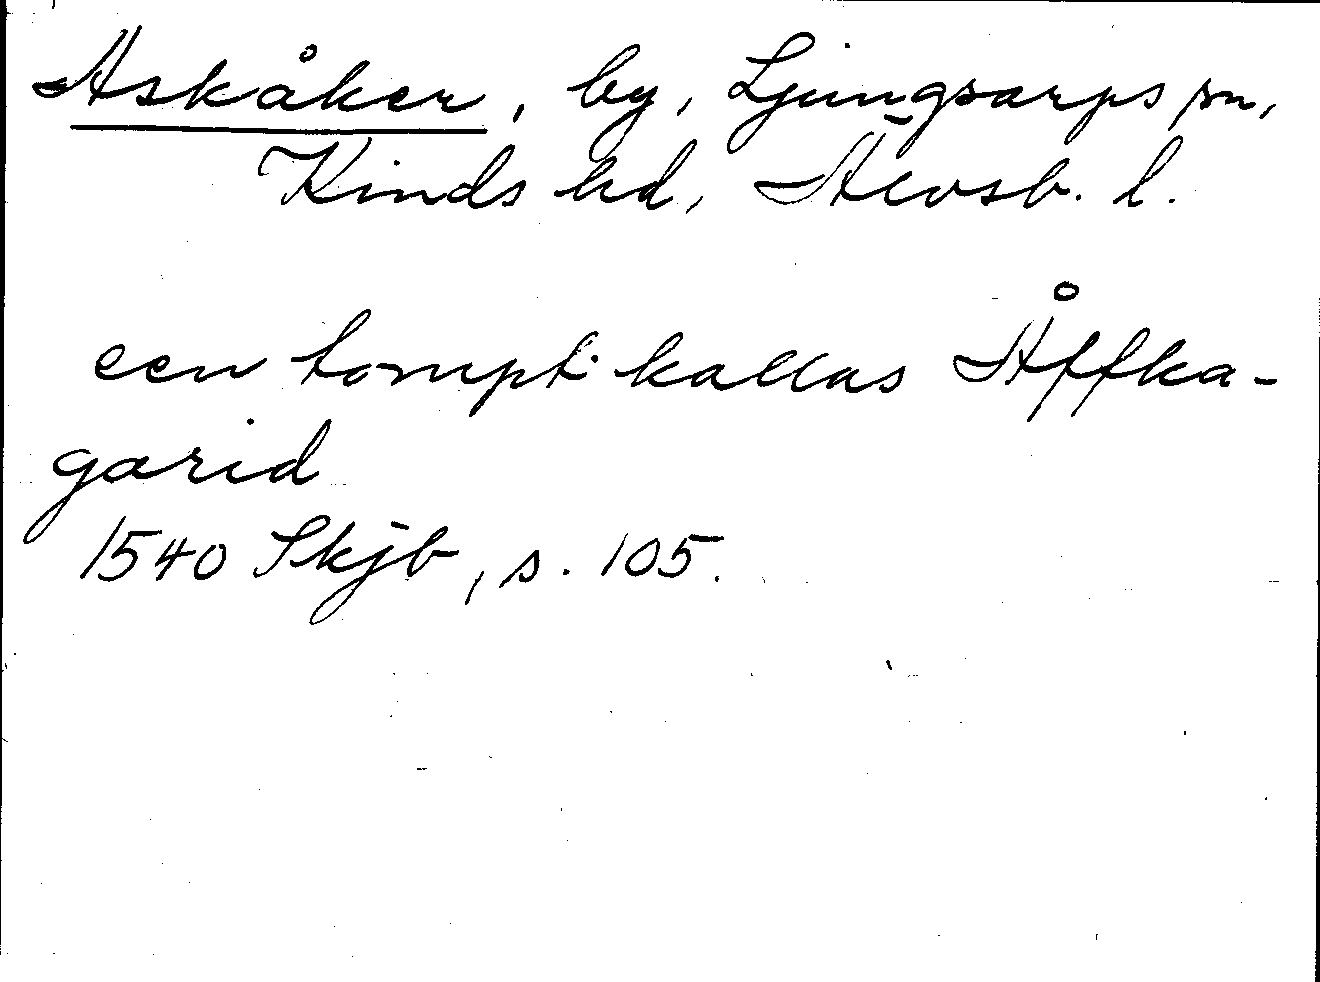 Askåker, by, Ljungsarps sn,
Kinds hd, Älvsb. l.
een tompt kallas Åffka-
garid
1540 Skjb, s. 105.